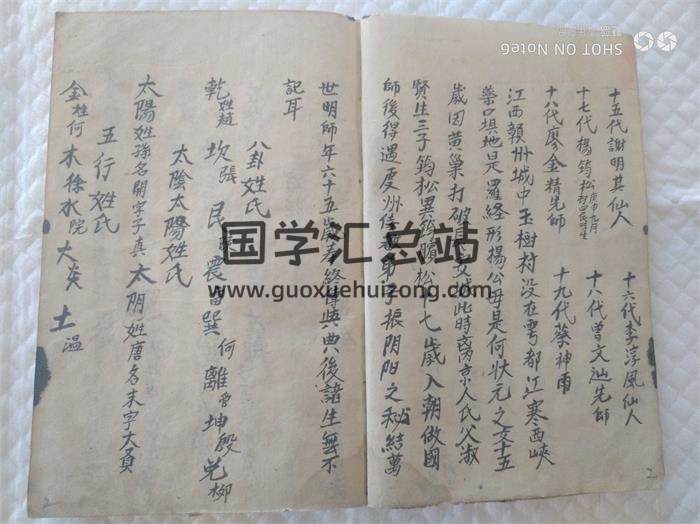 SHOT ON NOTE6
十五代謝明其仙人
十六代李淳風仙人
十七代楊筠松
十八代曾文辿先師
十八代廖金精先師
十九代蔡神甫
江西贛州城中玉樹村没在雩都江寒西峽
藥口填地是羅経形楊公母是何状元之女十五
歳因黄巢打破 此時 人氏父淑
賢生三子筠松 七歳入朝做國
師後得遇 振阴阳之秘結萬
世明師年六十五歳 典後諸生無不
記耳
八卦姓氏
乾 坎張 民 震 巽何 離 坤殷 兑柳
太陰太陽姓氏
太陽姓孫名開字子真 太阴姓唐名末字大員
五行姓氏
金姓何 木徐 水 火 土温
2
2
国学汇总站
www.guoxuehuizong.com